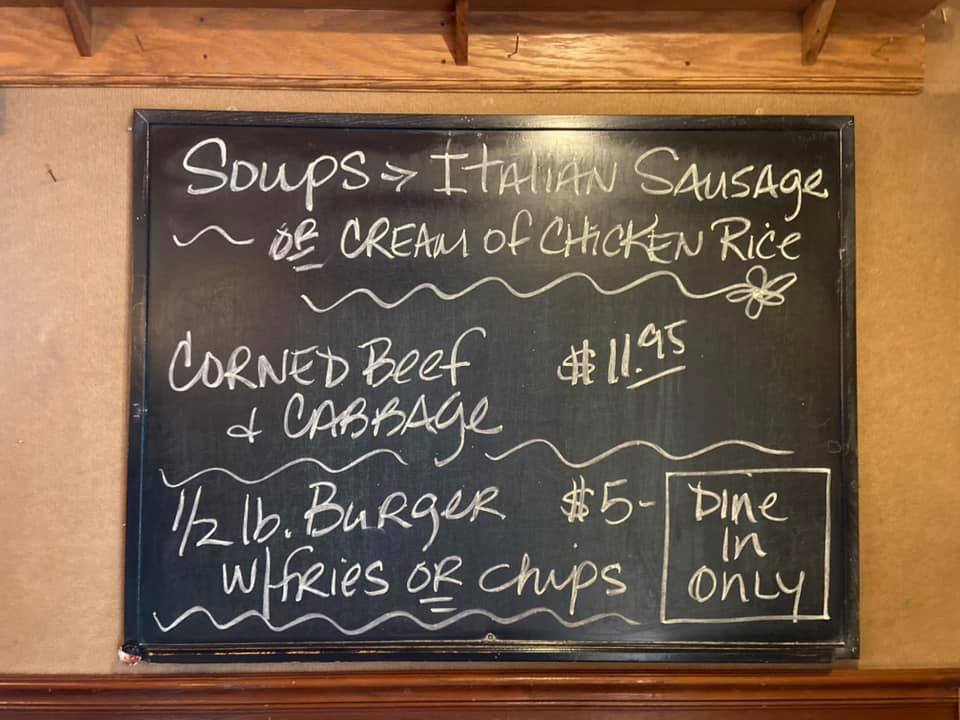 Soups > Italian Sausage
or Cream of Chicken Rice
Corned Beef $11.95
& Cabbage
1/2 lb. Burger $5-
w/fries or chips
Dine
in
only